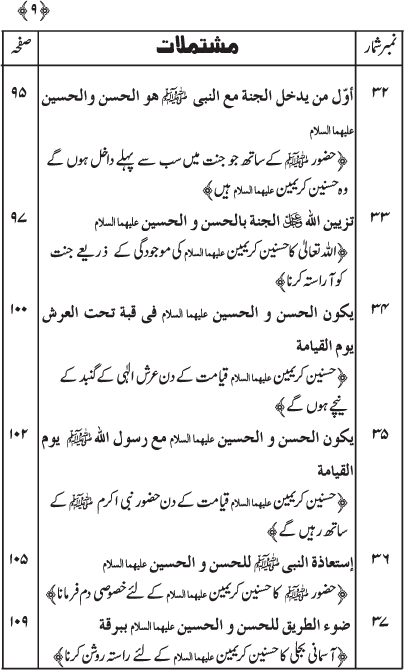 ﴿۹﴾
نمبر شمار مشتملات صفحہ
۳۲ أوّل من يدخل الجنة مع النبى ﷺ هو الحسن والحسين ۹۵
عليهما السلام
﴿حضور ﷺ کے ساتھ جو جنت میں سب سے پہلے داخل ہوں گے
وہ حسنین کریمین علیهما السلام ہیں﴾
۳۳ تزيين الله ﷻ الجنة بالحسن و الحسين عليهما السلام ۹۷
﴿اللہ تعالیٰ کا حسنین کریمین علیهما السلام کی موجودگی کے ذریعے جنت
کو آراستہ کرنا﴾
۳۴ يكون الحسن و الحسين عليهما السلام فى قبة تحت العرش ۱۰۰
يوم القيامة
﴿حسنین کریمین علیهما السلام قیامت کے دن عرش الٰہی کے گنبد کے
نیچے ہوں گے﴾
۳۵ يكون الحسن و الحسين عليهما السلام مع رسول الله ﷺ يوم ۱۰۲
القيامة
﴿حسنین کریمین علیهما السلام قیامت کے دن حضور نبی اکرم ﷺ کے
ساتھ رہیں گے﴾
۳۶ إستعاذة النبى ﷺ للحسن و الحسين عليهما السلام ۱۰۵
﴿حضور ﷺ کا حسنین کریمین علیهما السلام کے لئے خصوصی دم فرمانا﴾
۳۷ ضوء الطريق للحسن و الحسين عليهما السلام ببرقة ۱۰۹
﴿آسمانی بجلی کا حسنین کریمین علیهما السلام کے لئے راستہ روشن کرنا﴾